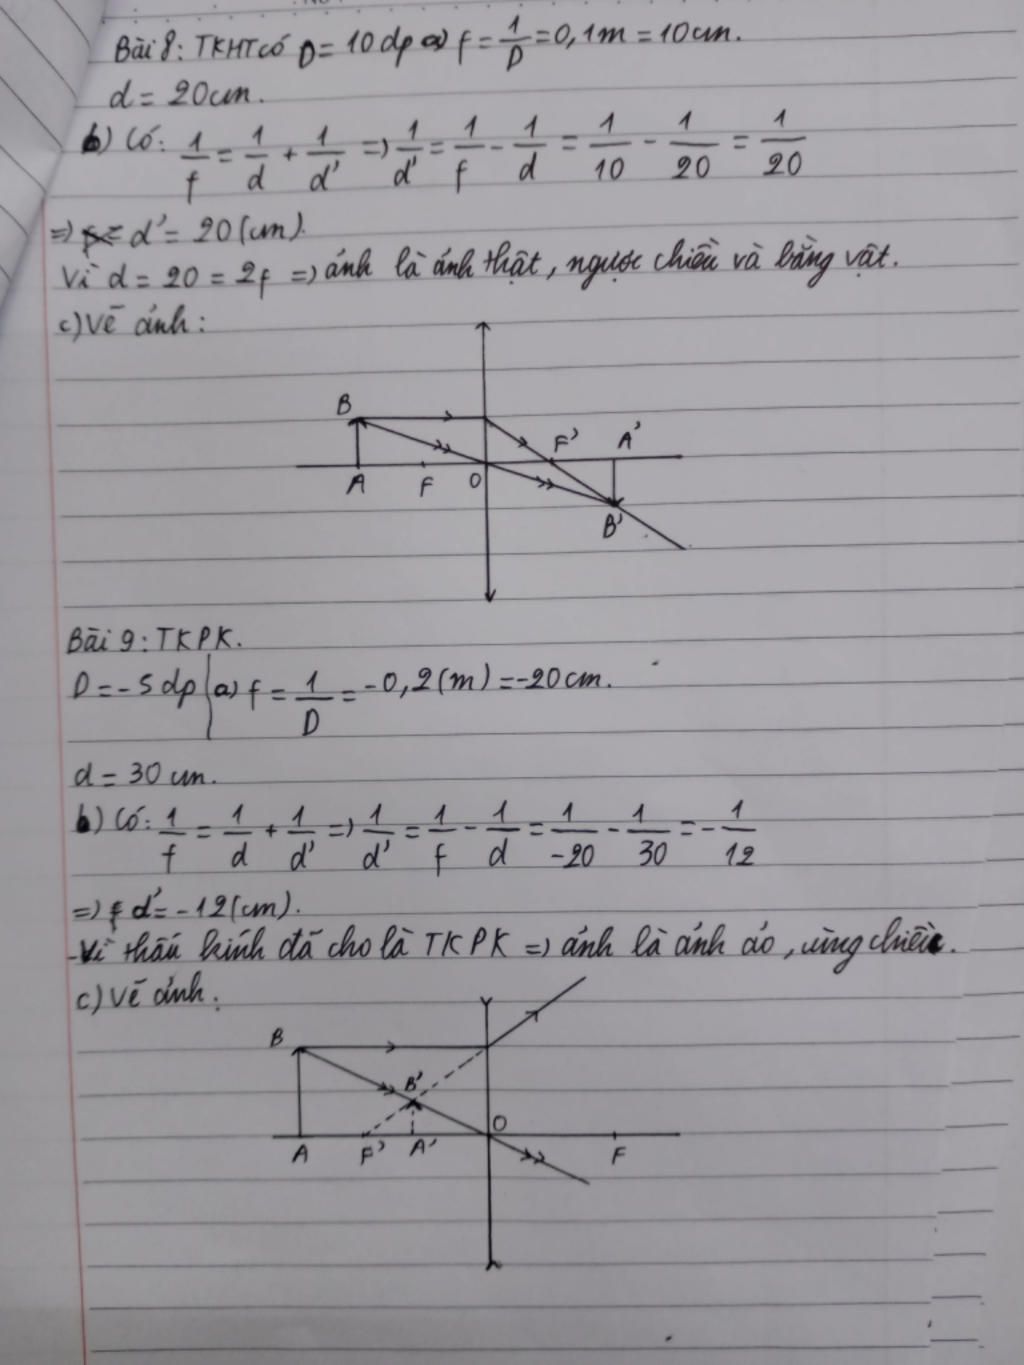 Bài 8: TKHT có D = 10 dp a) f = 1/D = 0,1 m = 10 cm.
d = 20 cm.
b) Có: 1/f = 1/d + 1/d' => 1/d' = 1/f - 1/d = 1/10 - 1/20 = 1/20
=> d' = 20 (cm).
Vì d = 20 = 2f => ảnh là ảnh thật, ngược chiều và bằng vật.
c) Vẽ ảnh:
B
F' A'
A F O
B'
Bài 9: TKPK.
D = -5 dp a) f = 1/D = -0,2 (m) = -20 cm.
d = 30 cm.
b) Có: 1/f = 1/d + 1/d' => 1/d' = 1/f - 1/d = 1/-20 - 1/30 = -1/12
=> d' = -12 (cm).
-Vì thấu kính đã cho là TKPK => ảnh là ảnh ảo, cùng chiều.
c) Vẽ ảnh.
B
B'
O
A F' A' F